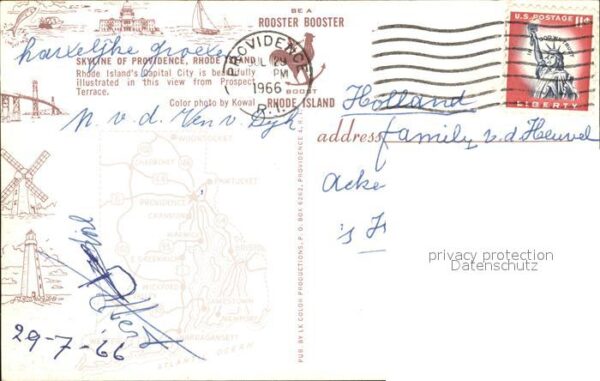 BE A
ROOSTER BOOSTER
BOOST
RHODE ISLAND
hartelijke groeten
SKYLINE OF PROVIDENCE, RHODE ISLAND
Rhode Island's Capital City is beautifully
illustrated in this view from Prospect
Terrace.
Color photo by Kowal
PROVIDENCE
JUL 29
PM
1966
R.I.
U.S. POSTAGE 11¢
IN GOD WE TRUST
LIBERTY
Holland
address family v.d. Heuvel
Acke
's H
privacy protection
Datenschutz
29-7-'66
WOONSOCKET
PAWTUCKET
PROVIDENCE
CRANSTON
WARWICK
BRISTOL
E. GREENWICH
WICKFORD
JAMESTOWN
NEWPORT
NARRAGANSETT
ATLANTIC OCEAN
PUB. BY LK COLOR PRODUCTIONS, P.O. BOX 6262, PROVIDENCE 4, R.I.